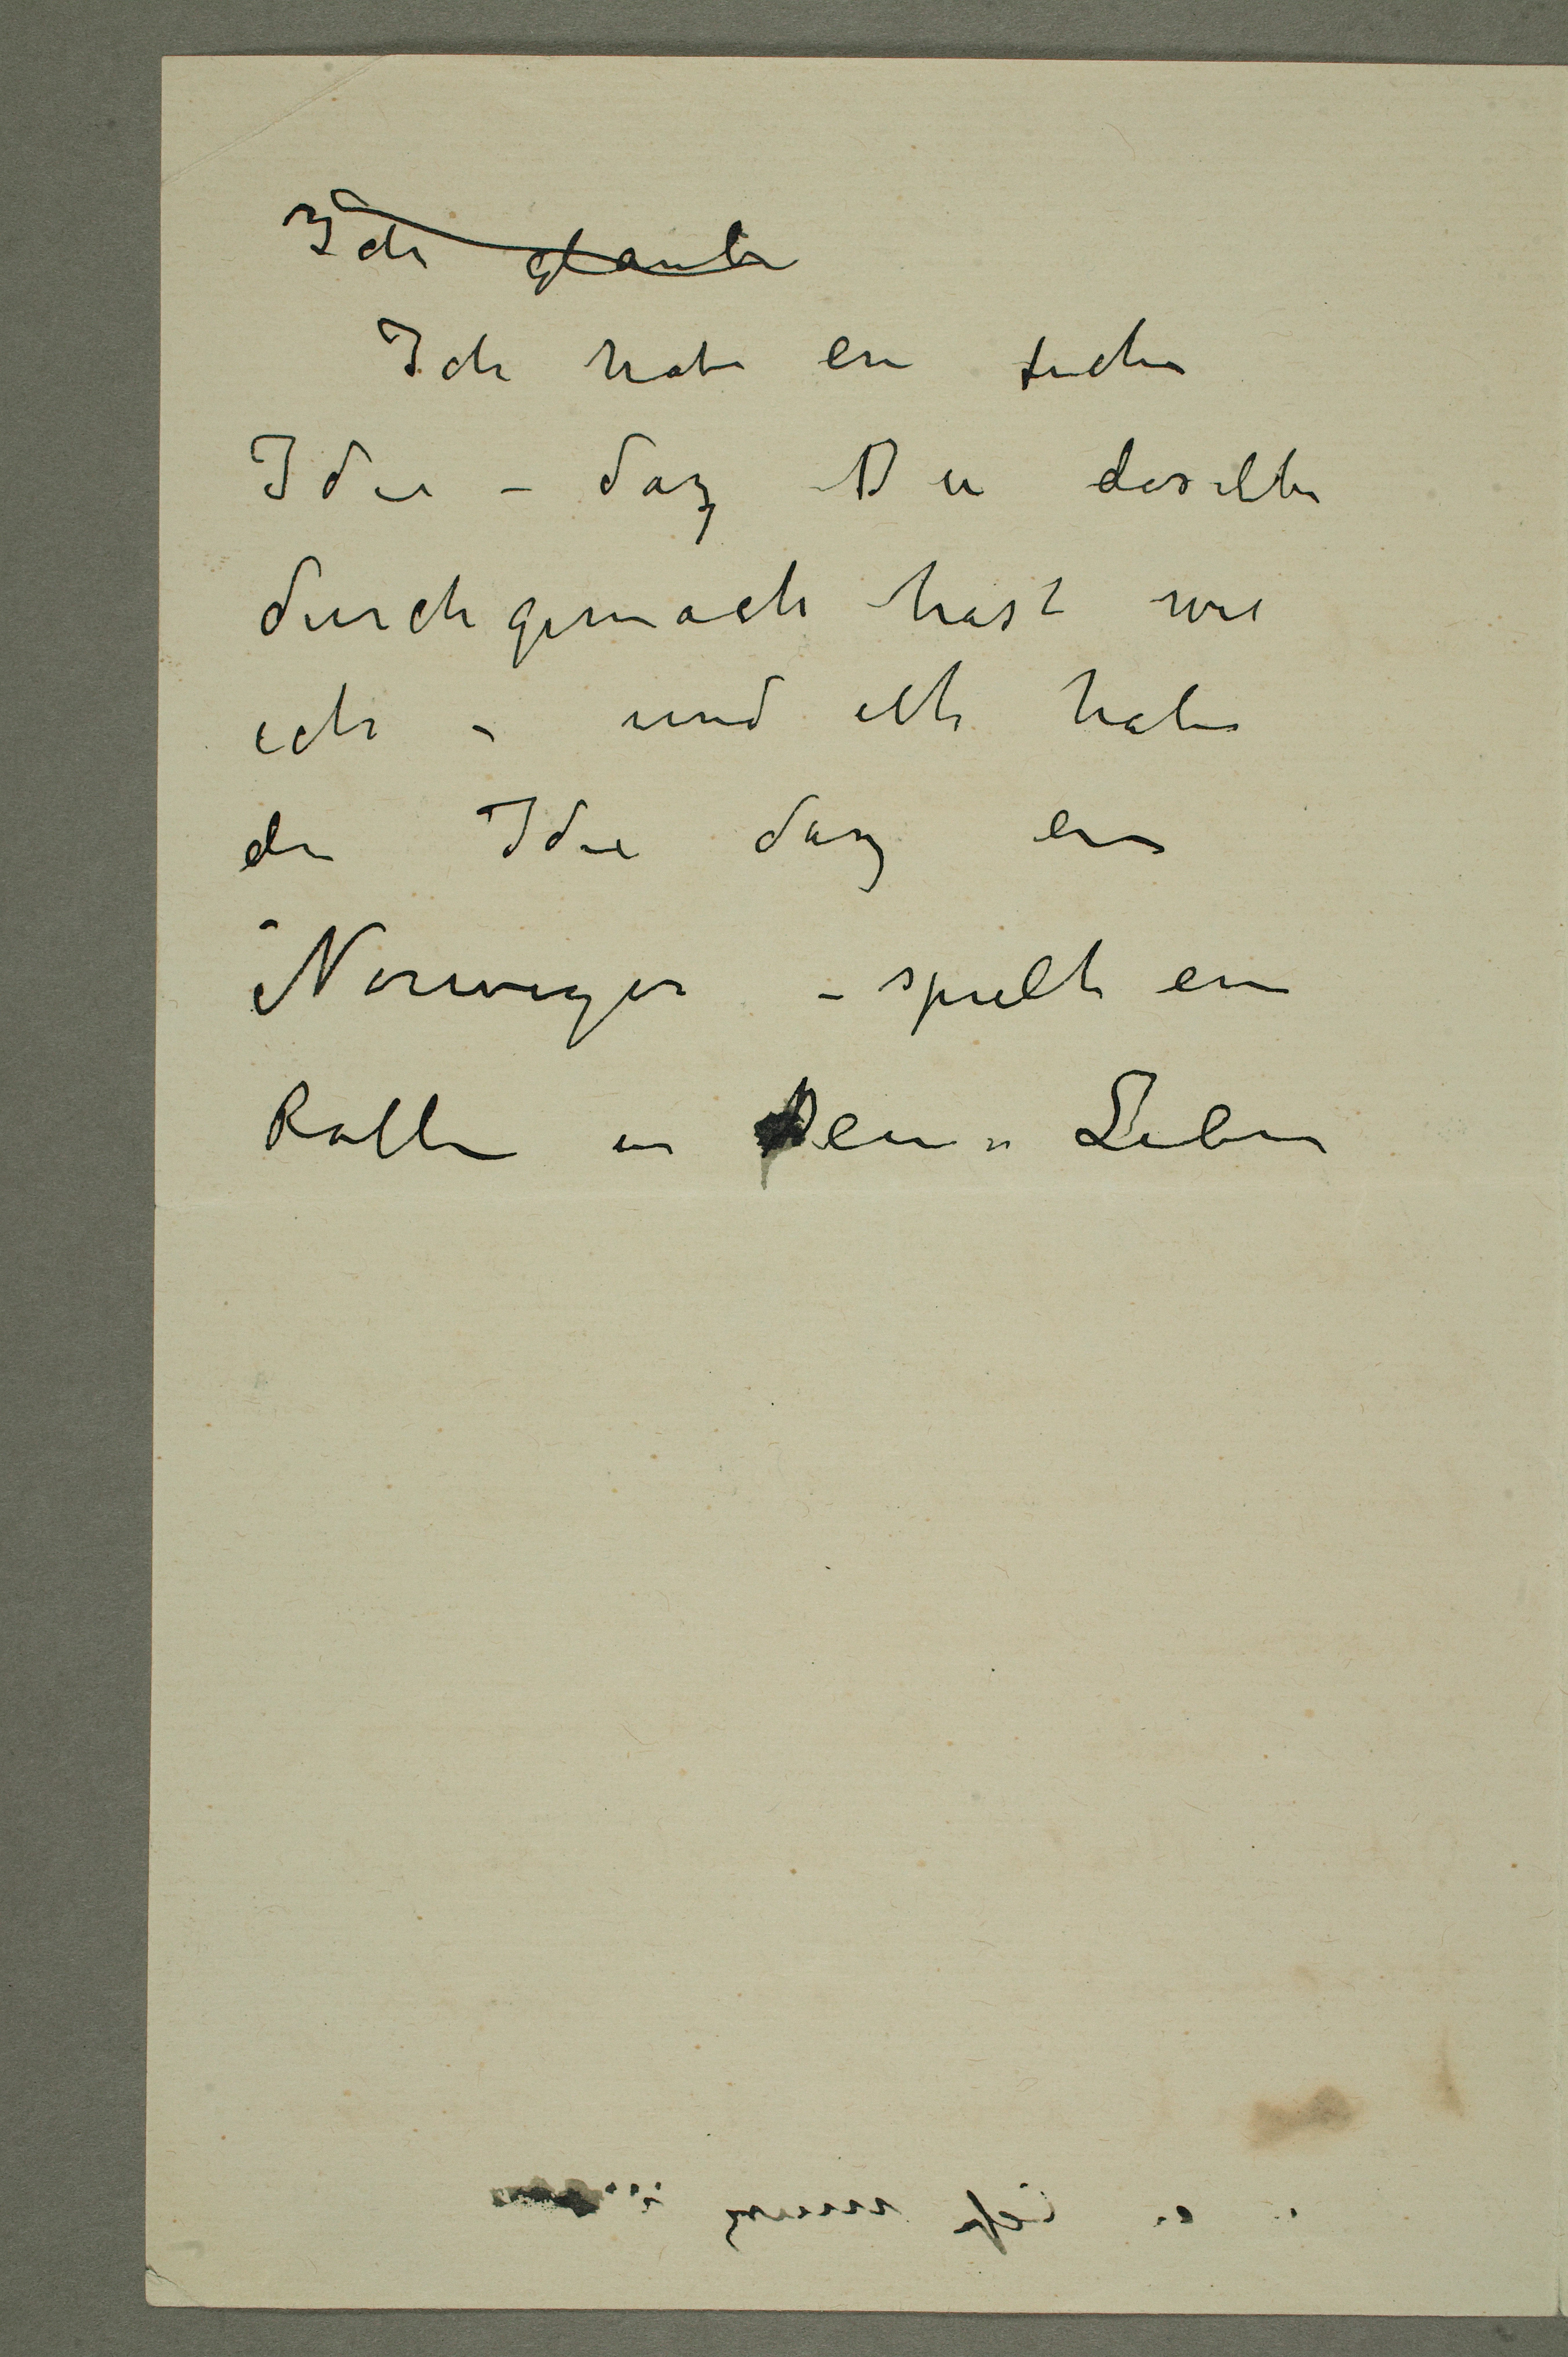 Ich glaube
Ich habe ein
Idee – daz Du daselbe
durchgemach hast wie
ich – und ich habe
die Idee daz ein
Norweger – spielt ein
Rolle in Dein Leben